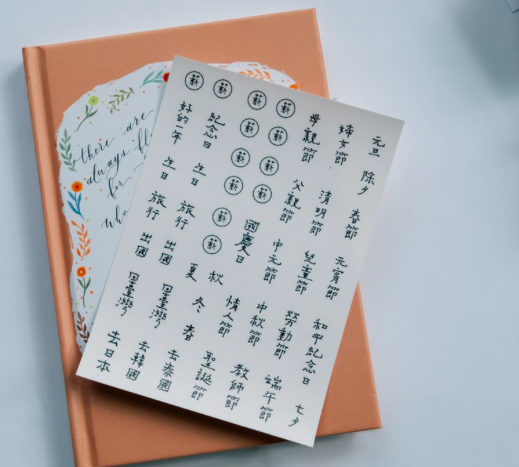 元旦
除夕
春節
元宵節
和平紀念日
七夕
婦女節
清明節
兒童節
勞動節
端午節
母親節
父親節
中元節
中秋節
教師節
薪 薪
薪 薪
薪 薪
薪 薪
薪 薪
薪
薪
國慶日
情人節
聖誕節
秋
冬
春
夏
紀念日
生日
旅行
出國
回臺灣
去泰國
去韓國
好的一年
生日
旅行
出國
回臺灣
去日本
there are
always
for